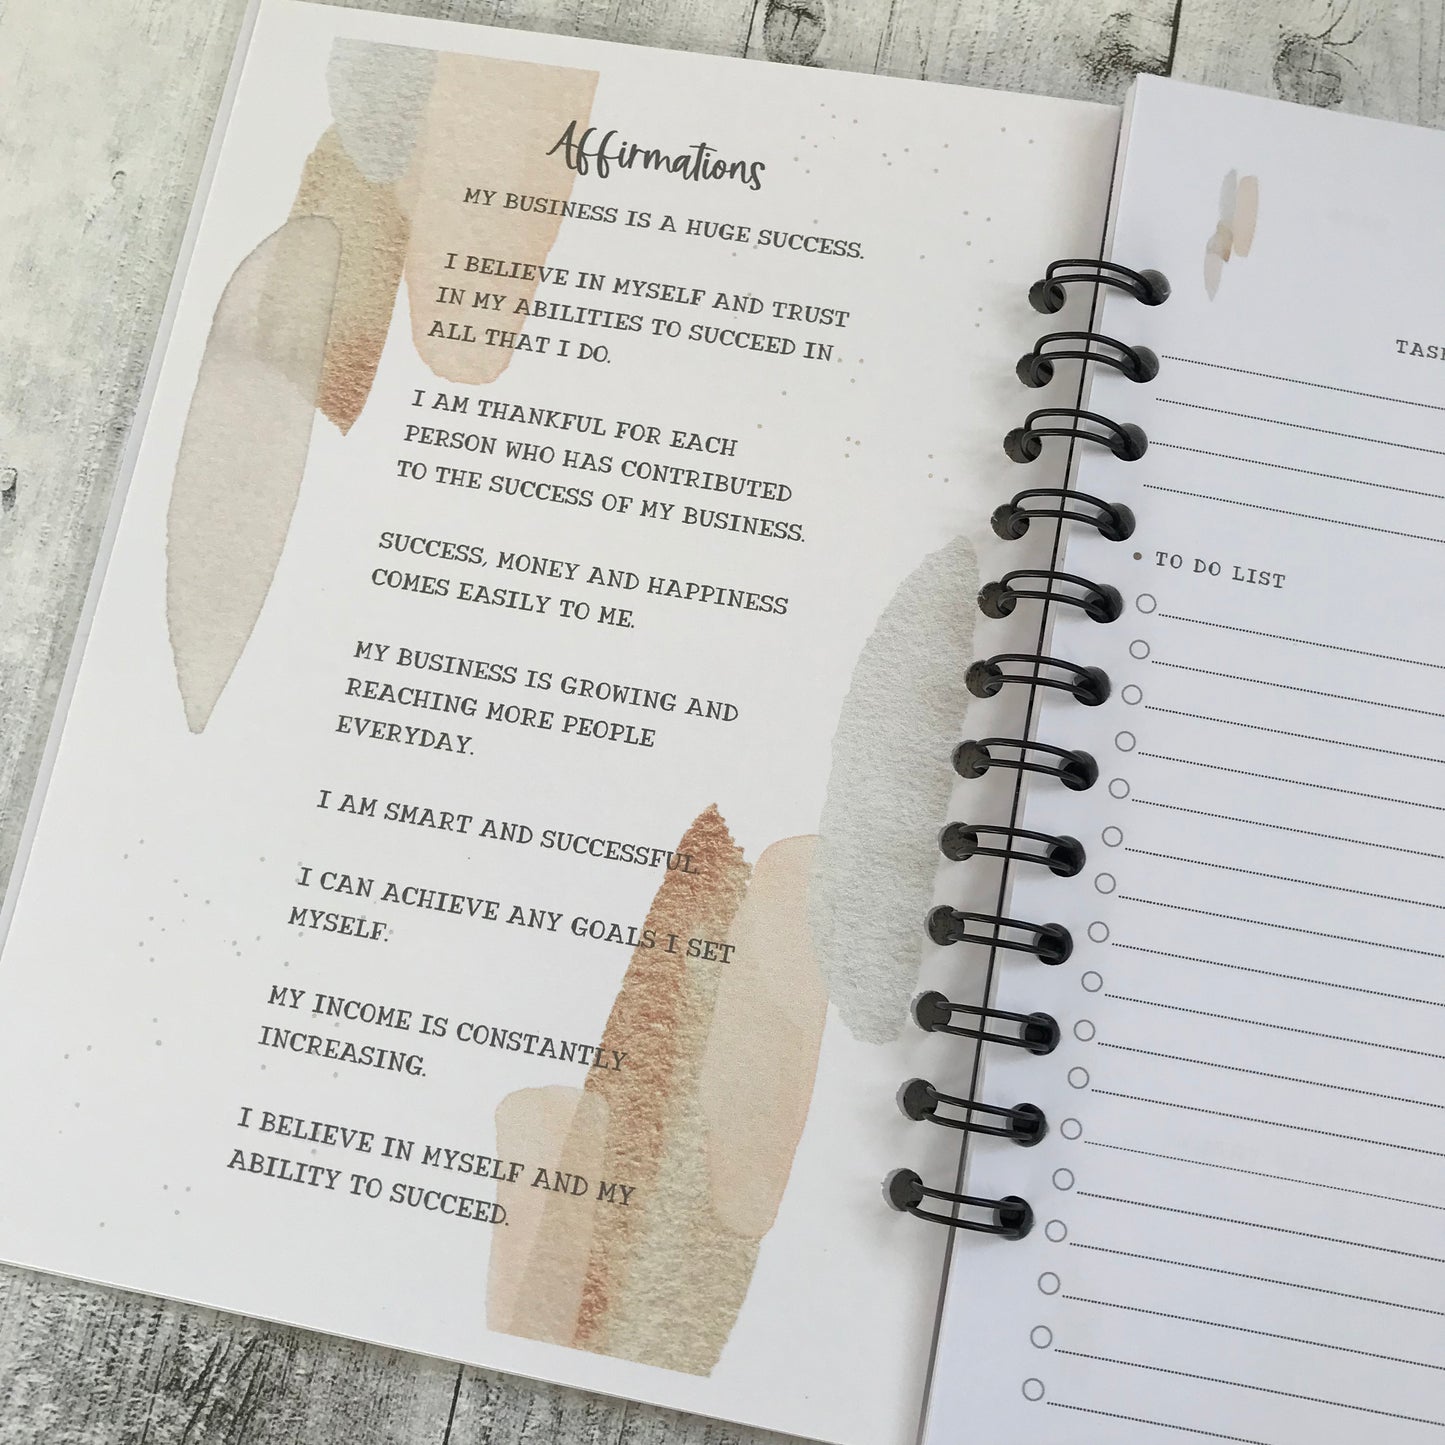 Affirmations
MY BUSINESS IS A HUGE SUCCESS.
I BELIEVE IN MYSELF AND TRUST
IN MY ABILITIES TO SUCCEED IN
ALL THAT I DO.
I AM THANKFUL FOR EACH
PERSON WHO HAS CONTRIBUTED
TO THE SUCCESS OF MY BUSINESS.
SUCCESS, MONEY AND HAPPINESS
COMES EASILY TO ME.
MY BUSINESS IS GROWING AND
REACHING MORE PEOPLE
EVERYDAY.
I AM SMART AND SUCCESSFUL
I CAN ACHIEVE ANY GOALS I SET
MYSELF.
MY INCOME IS CONSTANTLY
INCREASING.
I BELIEVE IN MYSELF AND MY
ABILITY TO SUCCEED.
TO DO LIST